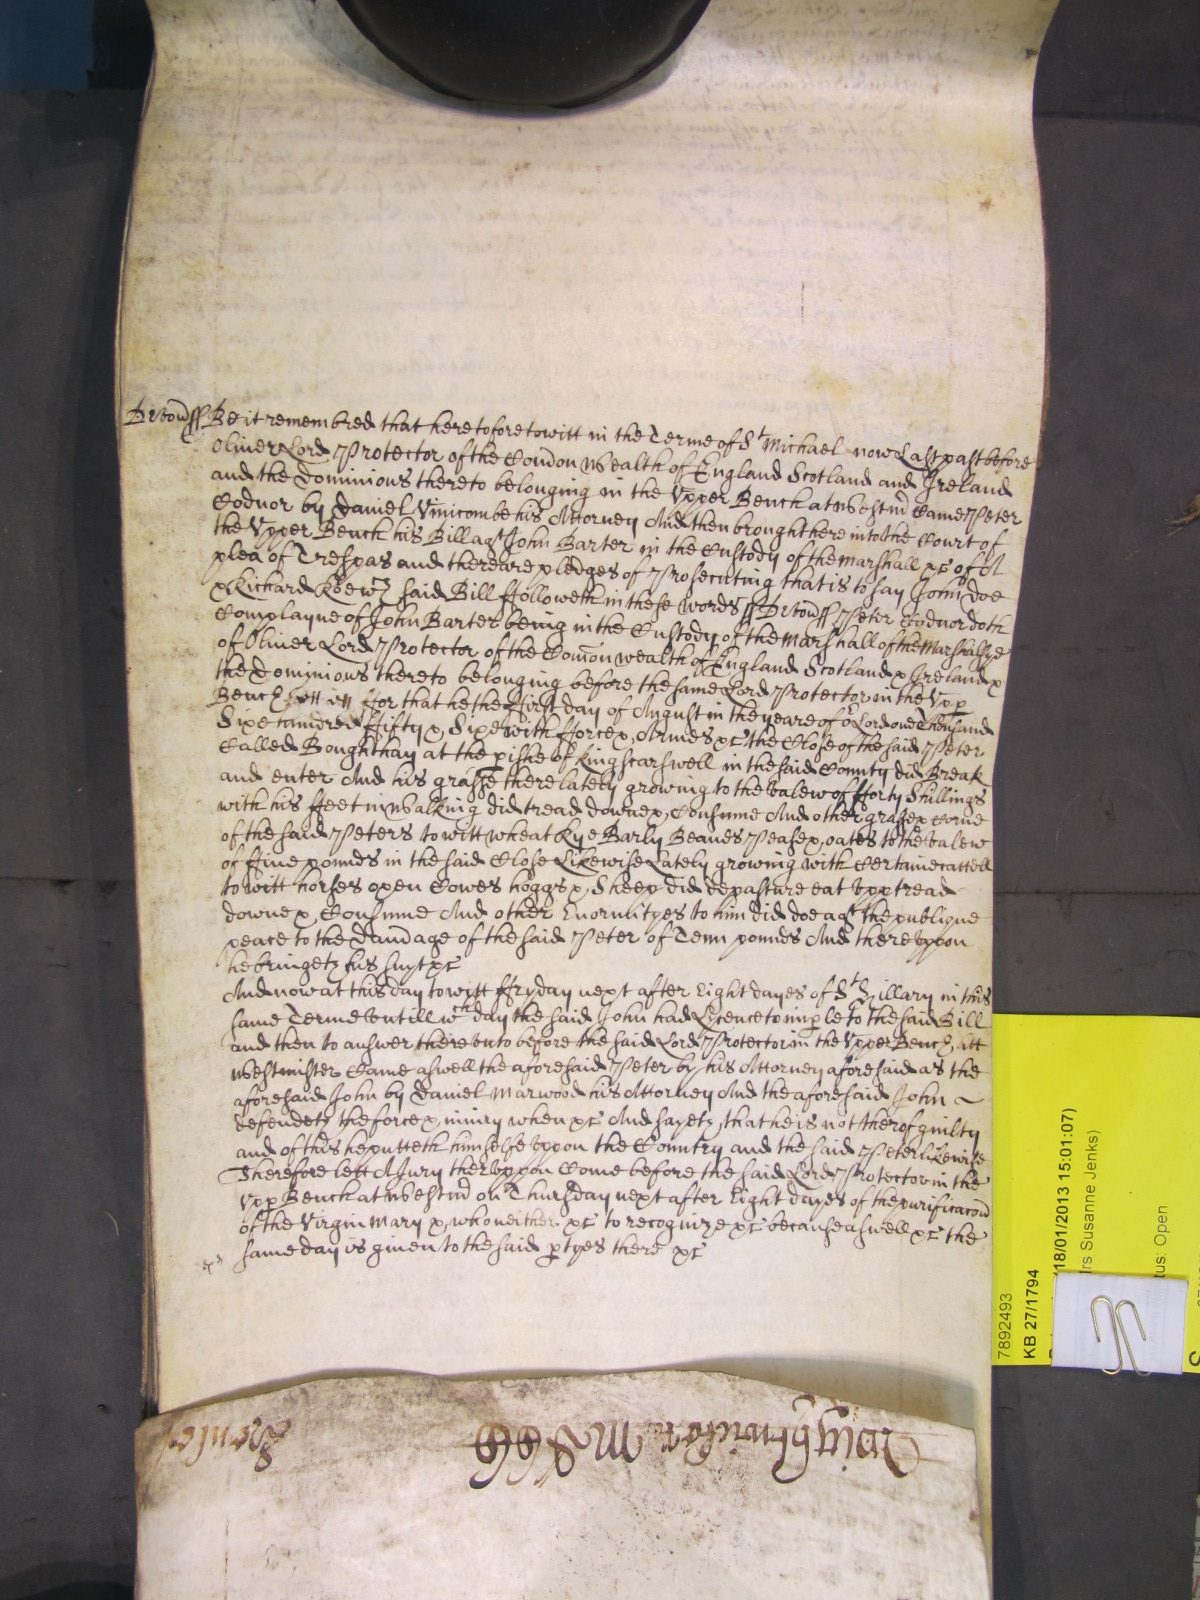 Devoñ ss Be it remembred that heretofore to witt in the Terme of St Michael now Last past before
Oliver Lord Protector of the Com̃on Wealth of England Scotland and Ireland
and the Dominions thereto belonging in the Vpper Bench at Westm̃ Came Peter
Codnor by Daniel Vinicombe his Attorney And then brought here into the Court of
the Vpper Bench his Bill agt John Barter in the Custody of the Marshall &c of A
plea of Trespas and there are pledges of Prosecuting that is to say John Doe
& Richard Roe wch said Bill ffolloweth in these words ss Devoñ ss Peter Codnor doth
Complayne of John Barter being in the Custody of the Marshall of the Marshalsye
of Oliver Lord Protector of the Com̃on wealth of England Scotland & Ireland &
the Dominions thereto belonging before the same Lord Protector in the Vpp
Bench ffor that he the ffirst day of August in the yeare of or Lord one Thousand
Sixe hundred ffifty & Sixe with fforce & Armes &c the Close of the said Peter
Called Boughthay at the pishe of Kingscarswell in the said County did Break
and enter And his grasse there lately growing to the valew of fforty Shillings
with his ffeet in Walking did tread downe & Consume And other grasse & Corne
of the said Peters to witt wheat Rye Barly Beanes Pease & oates to the valew
of ffive pounds in the said Close Likewise Lately growing with Certaine cattell
to witt horses oxen Cowes hoggs & Sheep did depasture eat vpp tread
downe & Consume And other Enormityes to him did doe agt the publique
peace to the Dam̃age of the said Peter of Tenn pounds And therevpon
he bringeth his suyt &c
And now at this day to witt ffryday next after Eight dayes of St Hillary in this
same Terme vntill wch day the said John had Licence to imple to the said Bill
and then to answer therevnto before the said Lord Protector in the Vpper Bench att
Westminster Came aswell the aforesaid Peter by his Attorney aforesaid as the
aforesaid John by Daniel Marwood his Attorney And the aforesaid John
defendeth the force & iniury when &c And sayeth that he is not therof guilty
and of this he putteth himselfe vpon the Country and the said Peter likewise
Therefore lett A Jury thervppon Come before the said Lord Protector in the
Vpp Bench at Westm̃ on Thursday next after Eight dayes of the purificac̃on
of the Virgin Mary & who neither &c to recognize &c because aswell &c the
same day is given to the said ptyes there &c
Wightwicke MS 66
7892493
KB 27/1794
18/01/2013 15:01:07)
rs Susanne Jenks)
tus: Open